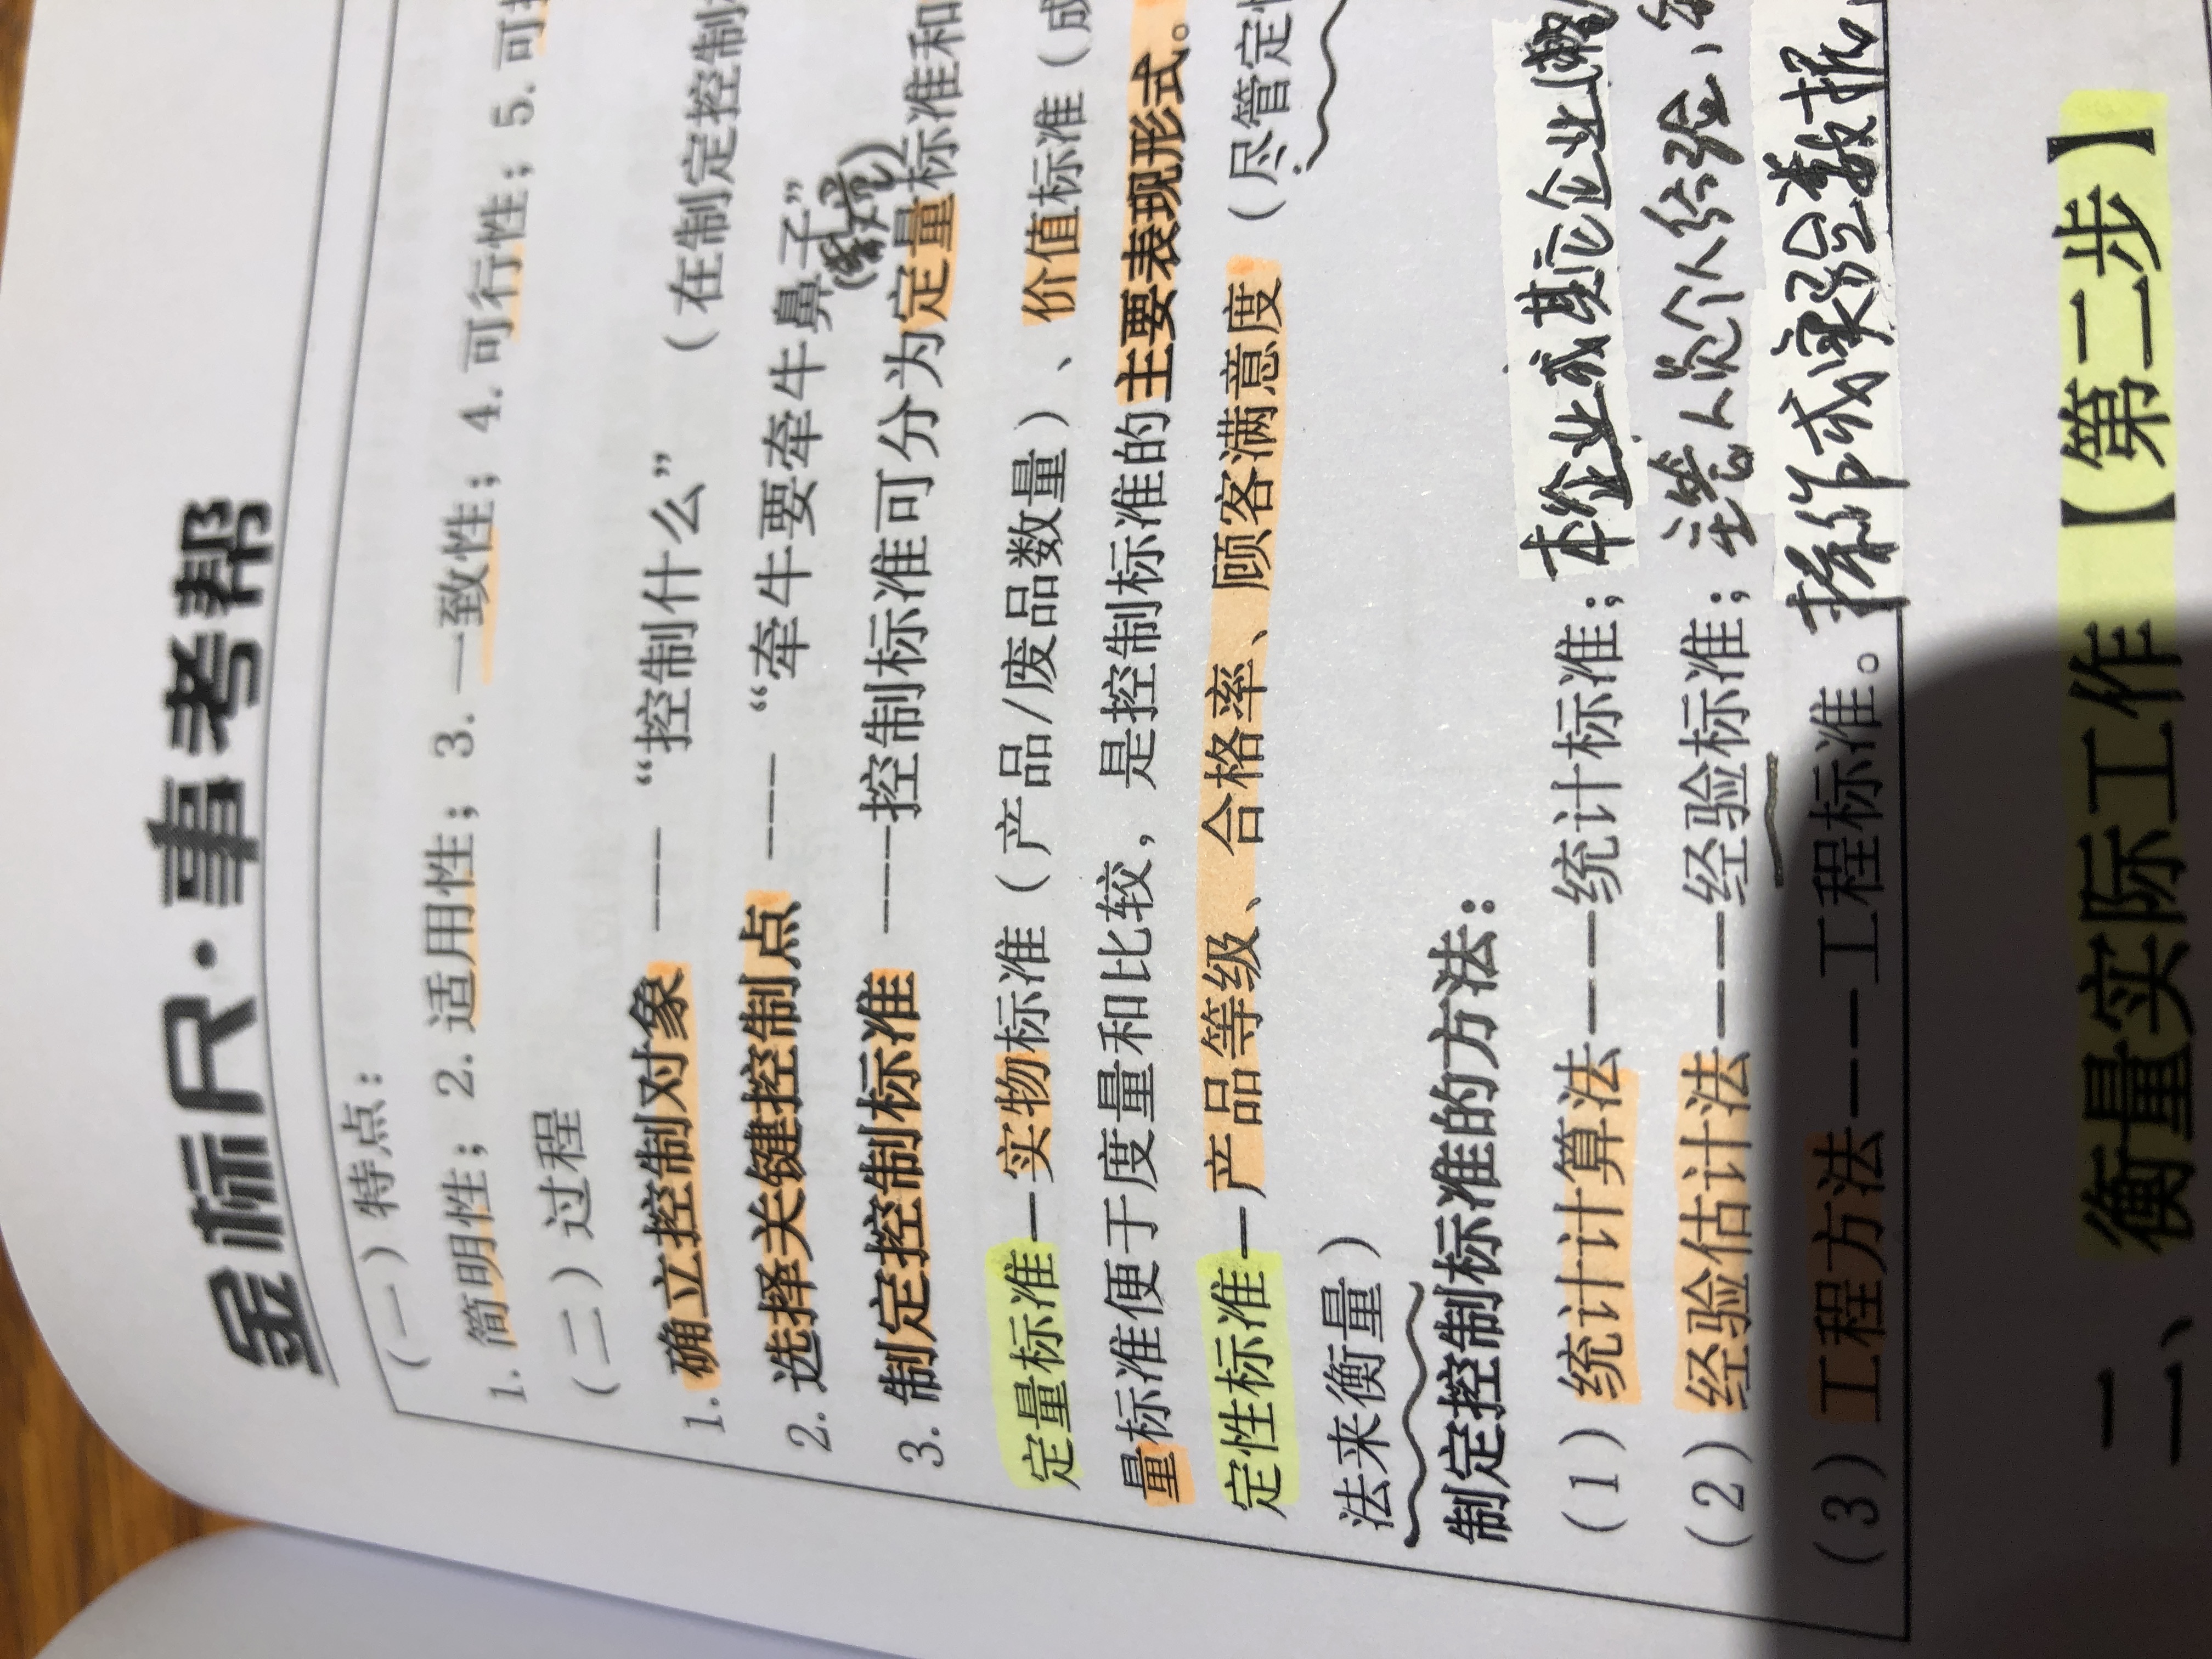 金标尺·事考帮
(一)特点：
1. 简明性；2. 适用性；3. 一致性；4. 可行性；5. 可
(二)过程
1. 确立控制对象 --- “控制什么” (在制定控制
2. 选择关键控制点 --- “牵牛要牵牛鼻子”
3. 制定控制标准 ---控制标准可分为定量标准和
定量标准—实物标准（产品/废品数量）、价值标准（成
量标准便于度量和比较，是控制标准的主要表现形式。
定性标准—产品等级、合格率、顾客满意度（尽管定
法来衡量）
制定控制标准的方法：
（1）统计计算法---统计标准；本企业或其它企业
（2）经验估计法---经验标准；主管人员个人经验、
（3）工程方法---工程标准。操作或实验数据
二、衡量实际工作【第二步】